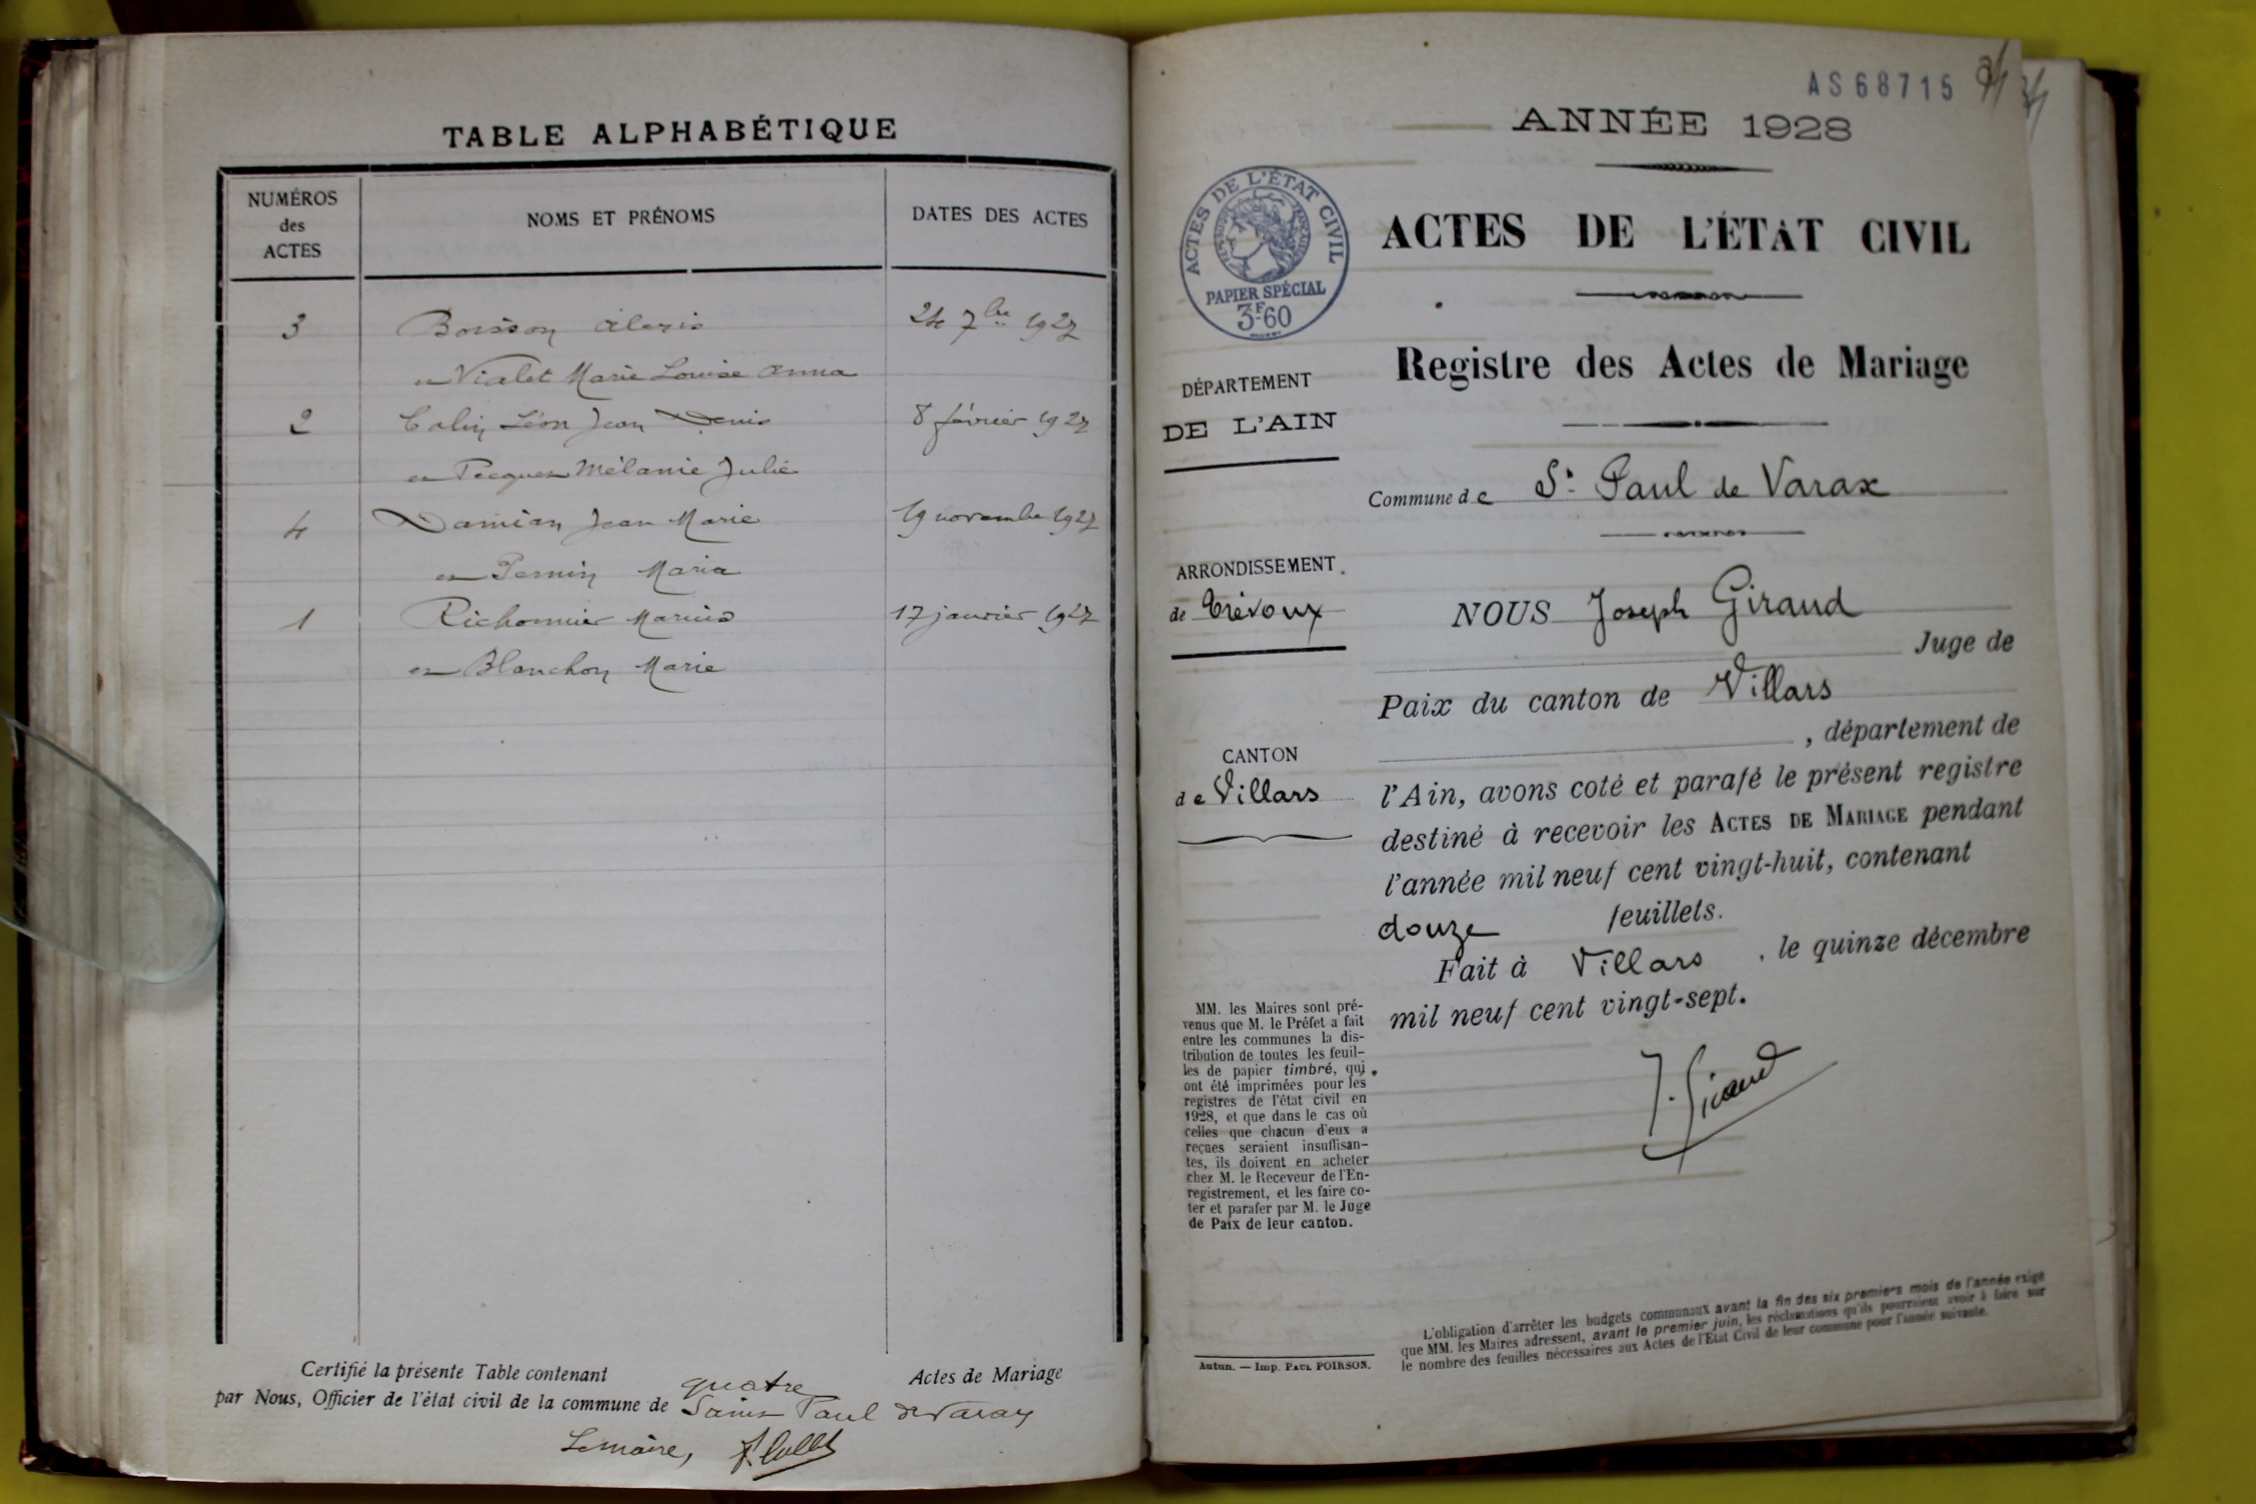 TABLE ALPHABÉTIQUE
NUMÉROS des ACTES
NOMS ET PRÉNOMS
DATES DES ACTES
3 Boisson Alexis 24 7bre 1927
et Vialet Marie Louise Anna
2 Colin Léon Jean Denis 8 février 1927
et Mélanie Julie
4 Damian Jean Marie 19 novembre 1927
et Pernin Maria
1 Richonnier Marius 17 janvier 1927
et Blanchon Marie
Certifié la présente Table contenant quatre Actes de Mariage
par Nous, Officier de l'état civil de la commune de Saint Paul de Varax
Le maire,
AS68715
ANNÉE 1928
ACTES DE L'ÉTAT CIVIL
PAPIER SPÉCIAL
3F60
ACTES DE L'ÉTAT CIVIL
Registre des Actes de Mariage
DÉPARTEMENT
DE L'AIN
Commune de St Paul de Varax
ARRONDISSEMENT
de Trévoux
CANTON
de Villars
NOUS Joseph Giraud
Juge de
Paix du canton de Villars
, département de
l'Ain, avons coté et parafé le présent registre
destiné à recevoir les ACTES DE MARIAGE pendant
l'année mil neuf cent vingt-huit, contenant
douze feuillets.
Fait à Villars, le quinze décembre
mil neuf cent vingt-sept.
J. Giraud
MM. les Maires sont pré-
venus que M. le Préfet a fait
entre les communes la dis-
tribution de toutes les feuil-
les de papier timbré, qui
ont été imprimées pour les
registres de l'état civil en
1928, et que dans le cas où
celles que chacun d'eux a
reçues seraient insuffisan-
tes, ils doivent en acheter
chez M. le Receveur de l'En-
registrement, et les faire co-
ter et parafer par M. le Juge
de Paix de leur canton.
Autun. — Imp. PAUL POIRSON.
L'obligation d'arrêter les budgets communaux avant la fin des six premiers mois de l'année exige
que MM. les Maires adressent, avant le premier juin, les réclamations qu'ils pourraient avoir à faire sur
le nombre des feuilles nécessaires aux Actes de l'État Civil de leur commune pour l'année suivante.